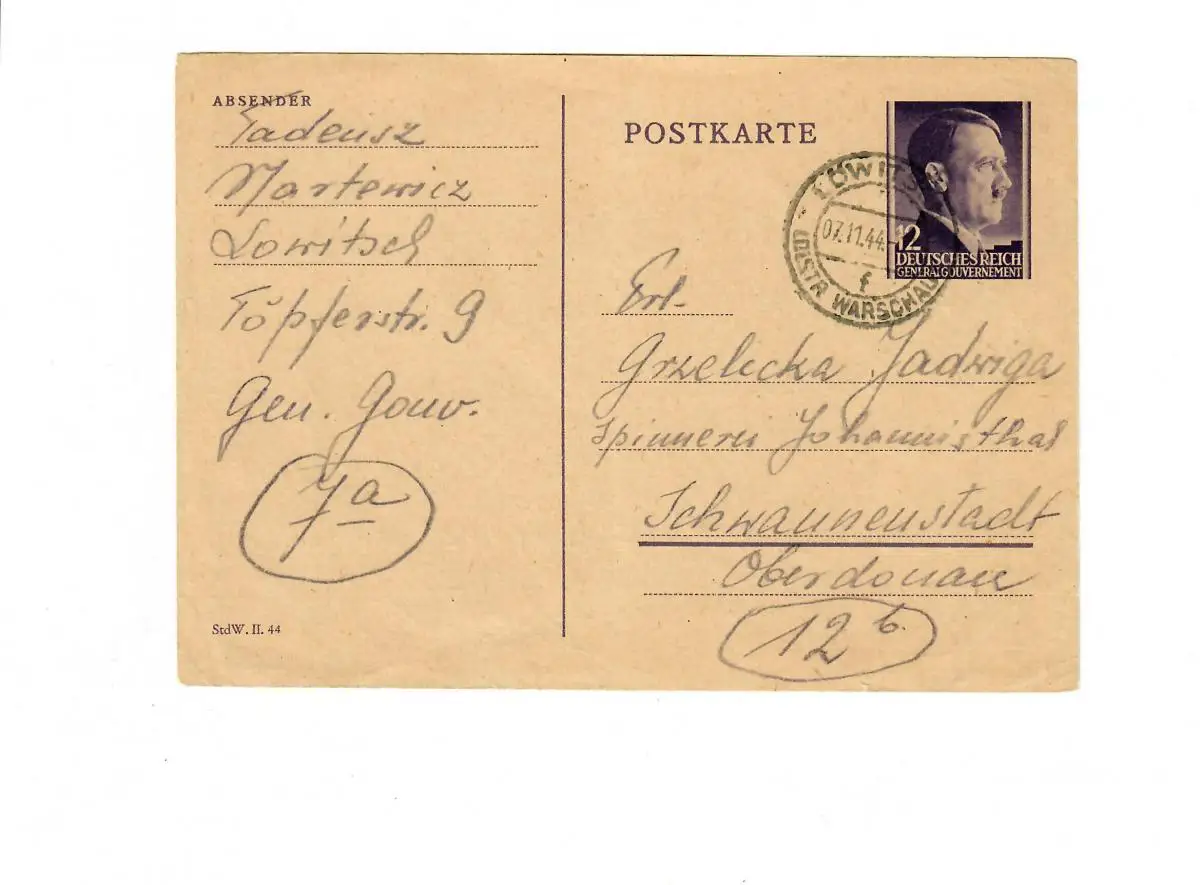 ABSENDER
Tadeusz
Martewicz
Lowitsch
Töpferstr. 9
Gen. Gouv.
7a
StdW. II. 44
POSTKARTE
LOWITSCH
07.11.44.
f
(DISTR WARSCHAU
12
DEUTSCHES REICH
GENERALGOUVERNEMENT
Frl.
Grzelecka Jadwiga
Spinnerei Johannisthal
Schwannenstadt
Oberdonau
12 b.